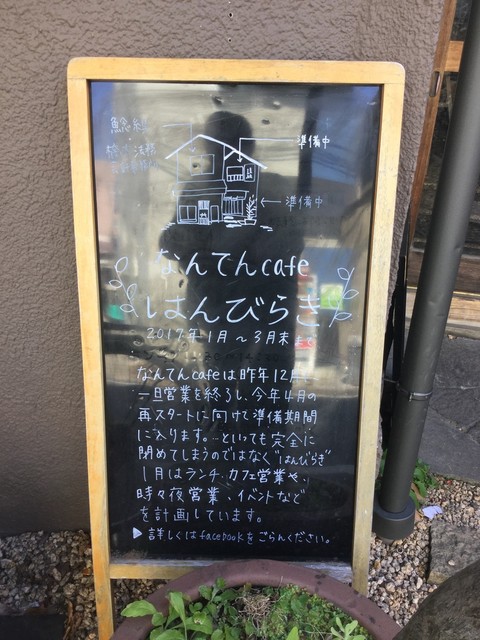 準備中
準備中
なんでんcafe
はんびらき
2017年1月〜3月末まで
なんてんcafeは昨年12月に
一旦営業を終了し、今年4月の
再スタートに向けて準備期間
に入ります。…といっても完全に
閉めてしまうのではなく"はんびらき"
1月はランチ、カフェ営業や、
時々夜営業、イベントなど
を計画しています。
▶詳しくはfacebookをごらんください。